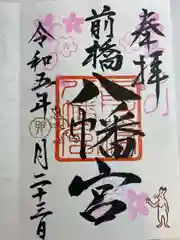 奉拝
前橋
八幡宮
令和五年
卯
月二十三日